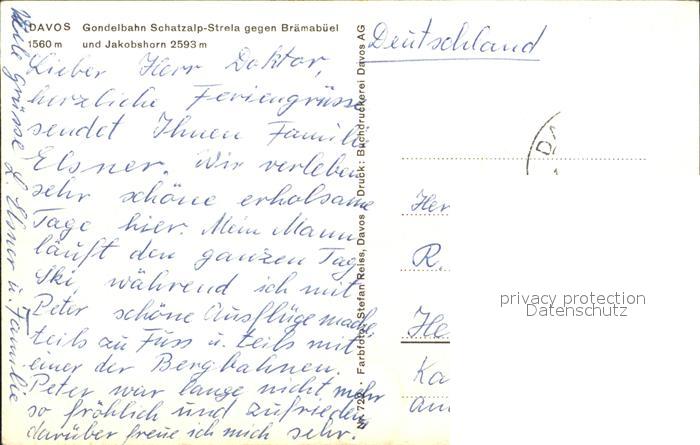 DAVOS Gondelbahn Schatzalp-Strela gegen Brämabüel
1560 m und Jakobshorn 2593 m
Lieber Herr Doktor,
herzliche Feriengrüsse
sendet Ihnen Familie
Elsner. Wir verleben
sehr schöne erholsame
Tage hier. Mein Mann
läuft den ganzen Tag
Ski, während ich mit
Peter schöne Ausflüge mache,
teils zu Fuss u. teils mit
einer der Bergbahnen.
Peter war lange nicht mehr
so fröhlich und zufrieden,
darüber freue ich mich sehr.
Viele Grüsse L. Elsner u. Familie
Nr. 722 · Farbfoto: Stefan Reiss, Davos Druck: Buchdruckerei Davos AG
Deutschland
DA
Her
R.
He
Ka
am
privacy protection
Datenschutz